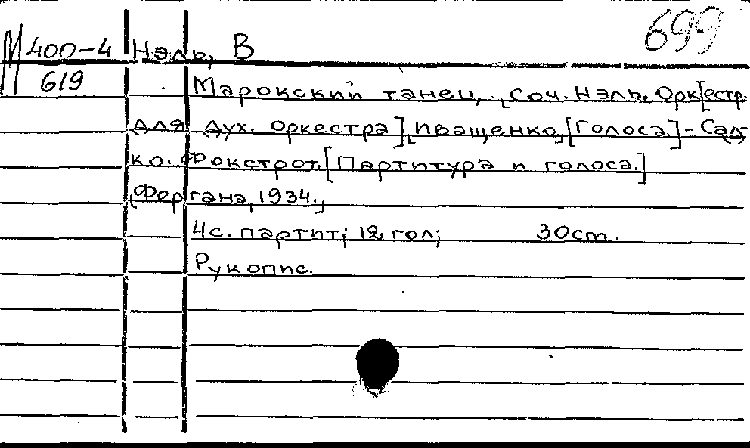 699
М 400-4 Нэль, В
619
Марокский танец, [Соч. Нэль, Орк[естр.
для дух. оркестра], Иващенко, [Голоса] - Сад
ко. Фокстрот. [Партитура и голоса.]
[Фергана, 1934.]
4с. партит; 12 гол; 30cm.
Рукопис.